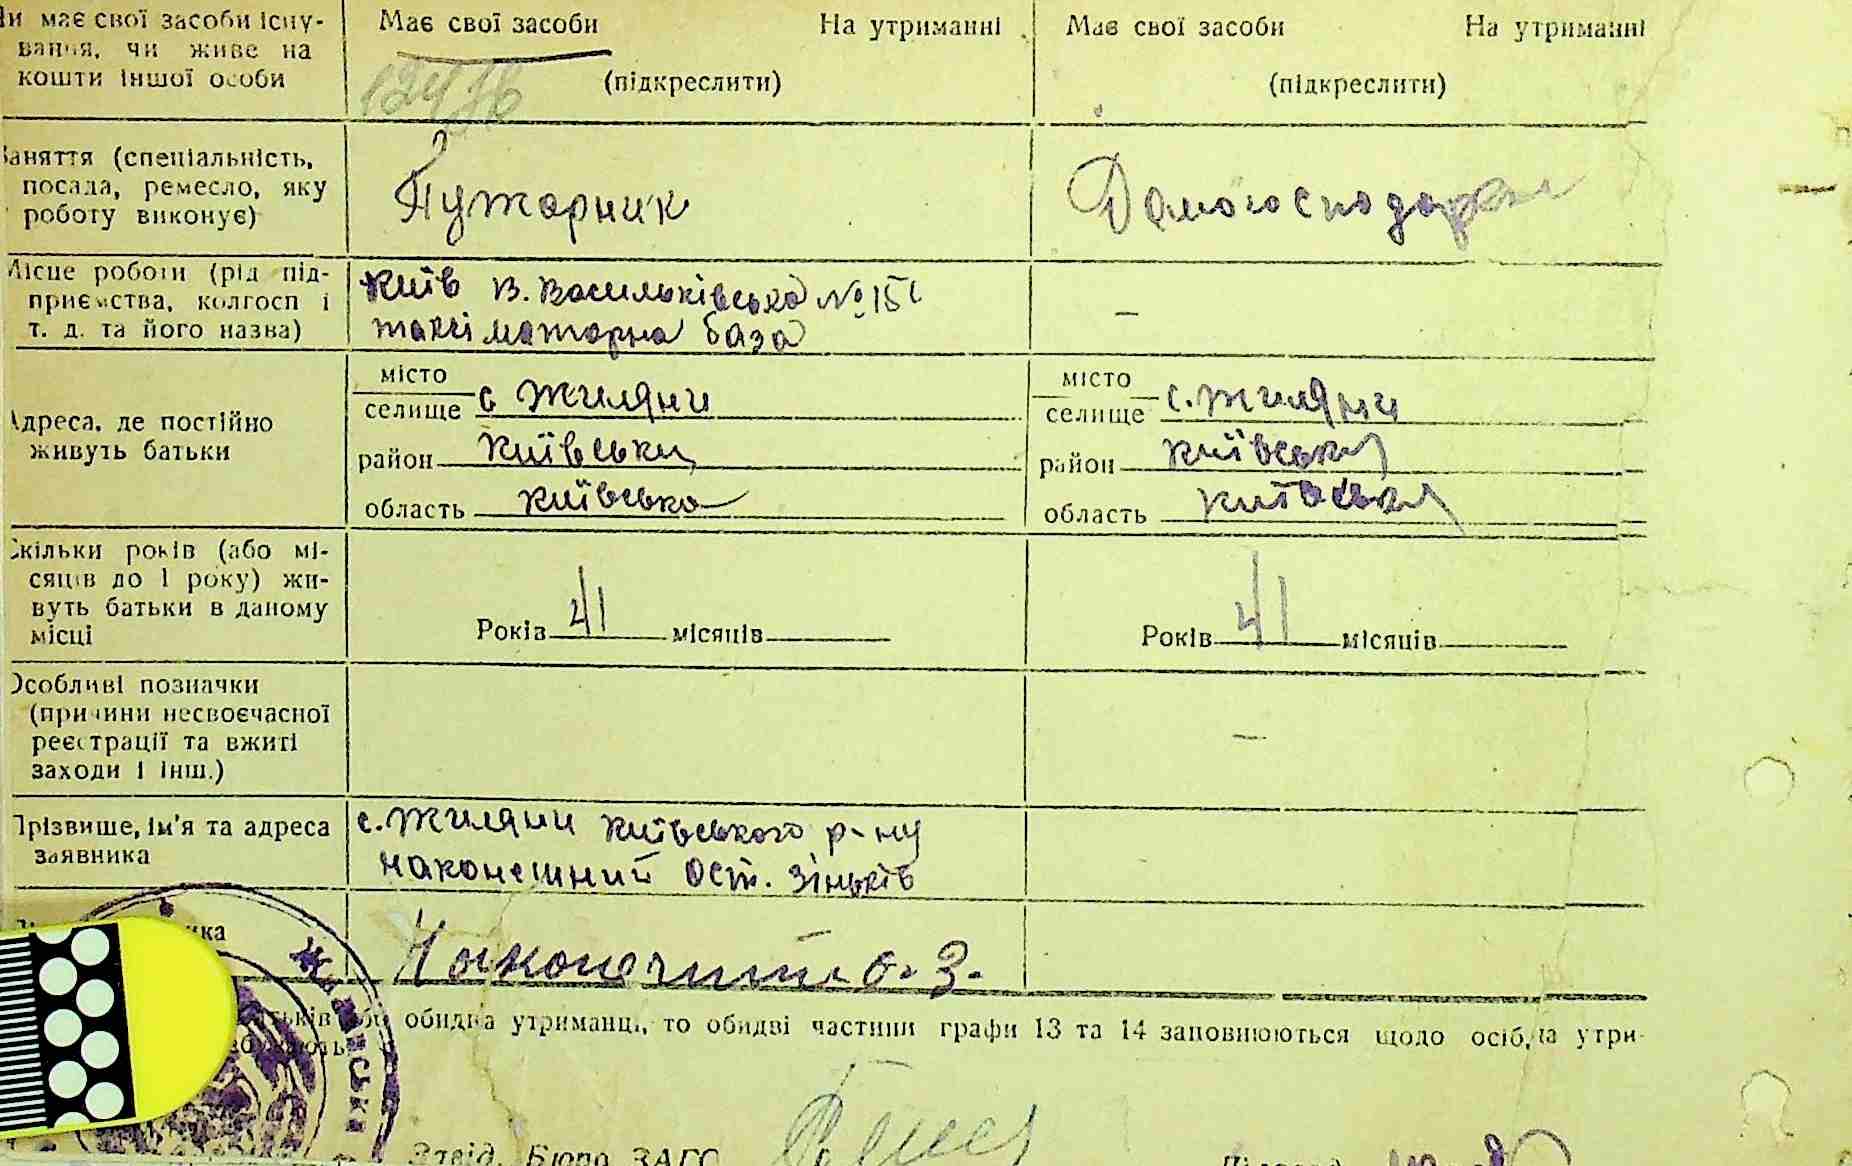 Чи має свої засоби існу-
вання, чи живе на
кошти іншої особи
Має свої засоби На утриманні
(підкреслити)
Має свої засоби На утриманні
(підкреслити)
Заняття (спеціальність,
посада, ремесло, яку
роботу виконує)
Пужарник
Домогосподарка
Місце роботи (рід під-
приємства, колгосп і
т. д. та його назва)
Київ В. Васильківська №151
таксі моторна база
—
Адреса, де постійно
живуть батьки
місто
селище с Жиляни
район Київськи
область Київська
місто
селище с. Жиляни
район Київськи
область Київська
Скільки років (або мі-
сяців до 1 року) жи-
вуть батьки в даному
місці
Років 41 місяців
Років 41 місяців
Особливі позначки
(причини несвоєчасної
реєстрації та вжиті
заходи і інш.)
—
Прізвище, ім'я та адреса
заявника
с. Жиляни Київського р-ну
Наконешний Ост. Зіньків
Наконечний О. З.
обидва утриманці, то обидві частини графи 13 та 14 заповнюються щодо осіб, на утри-
Завід. Бюро ЗАГС